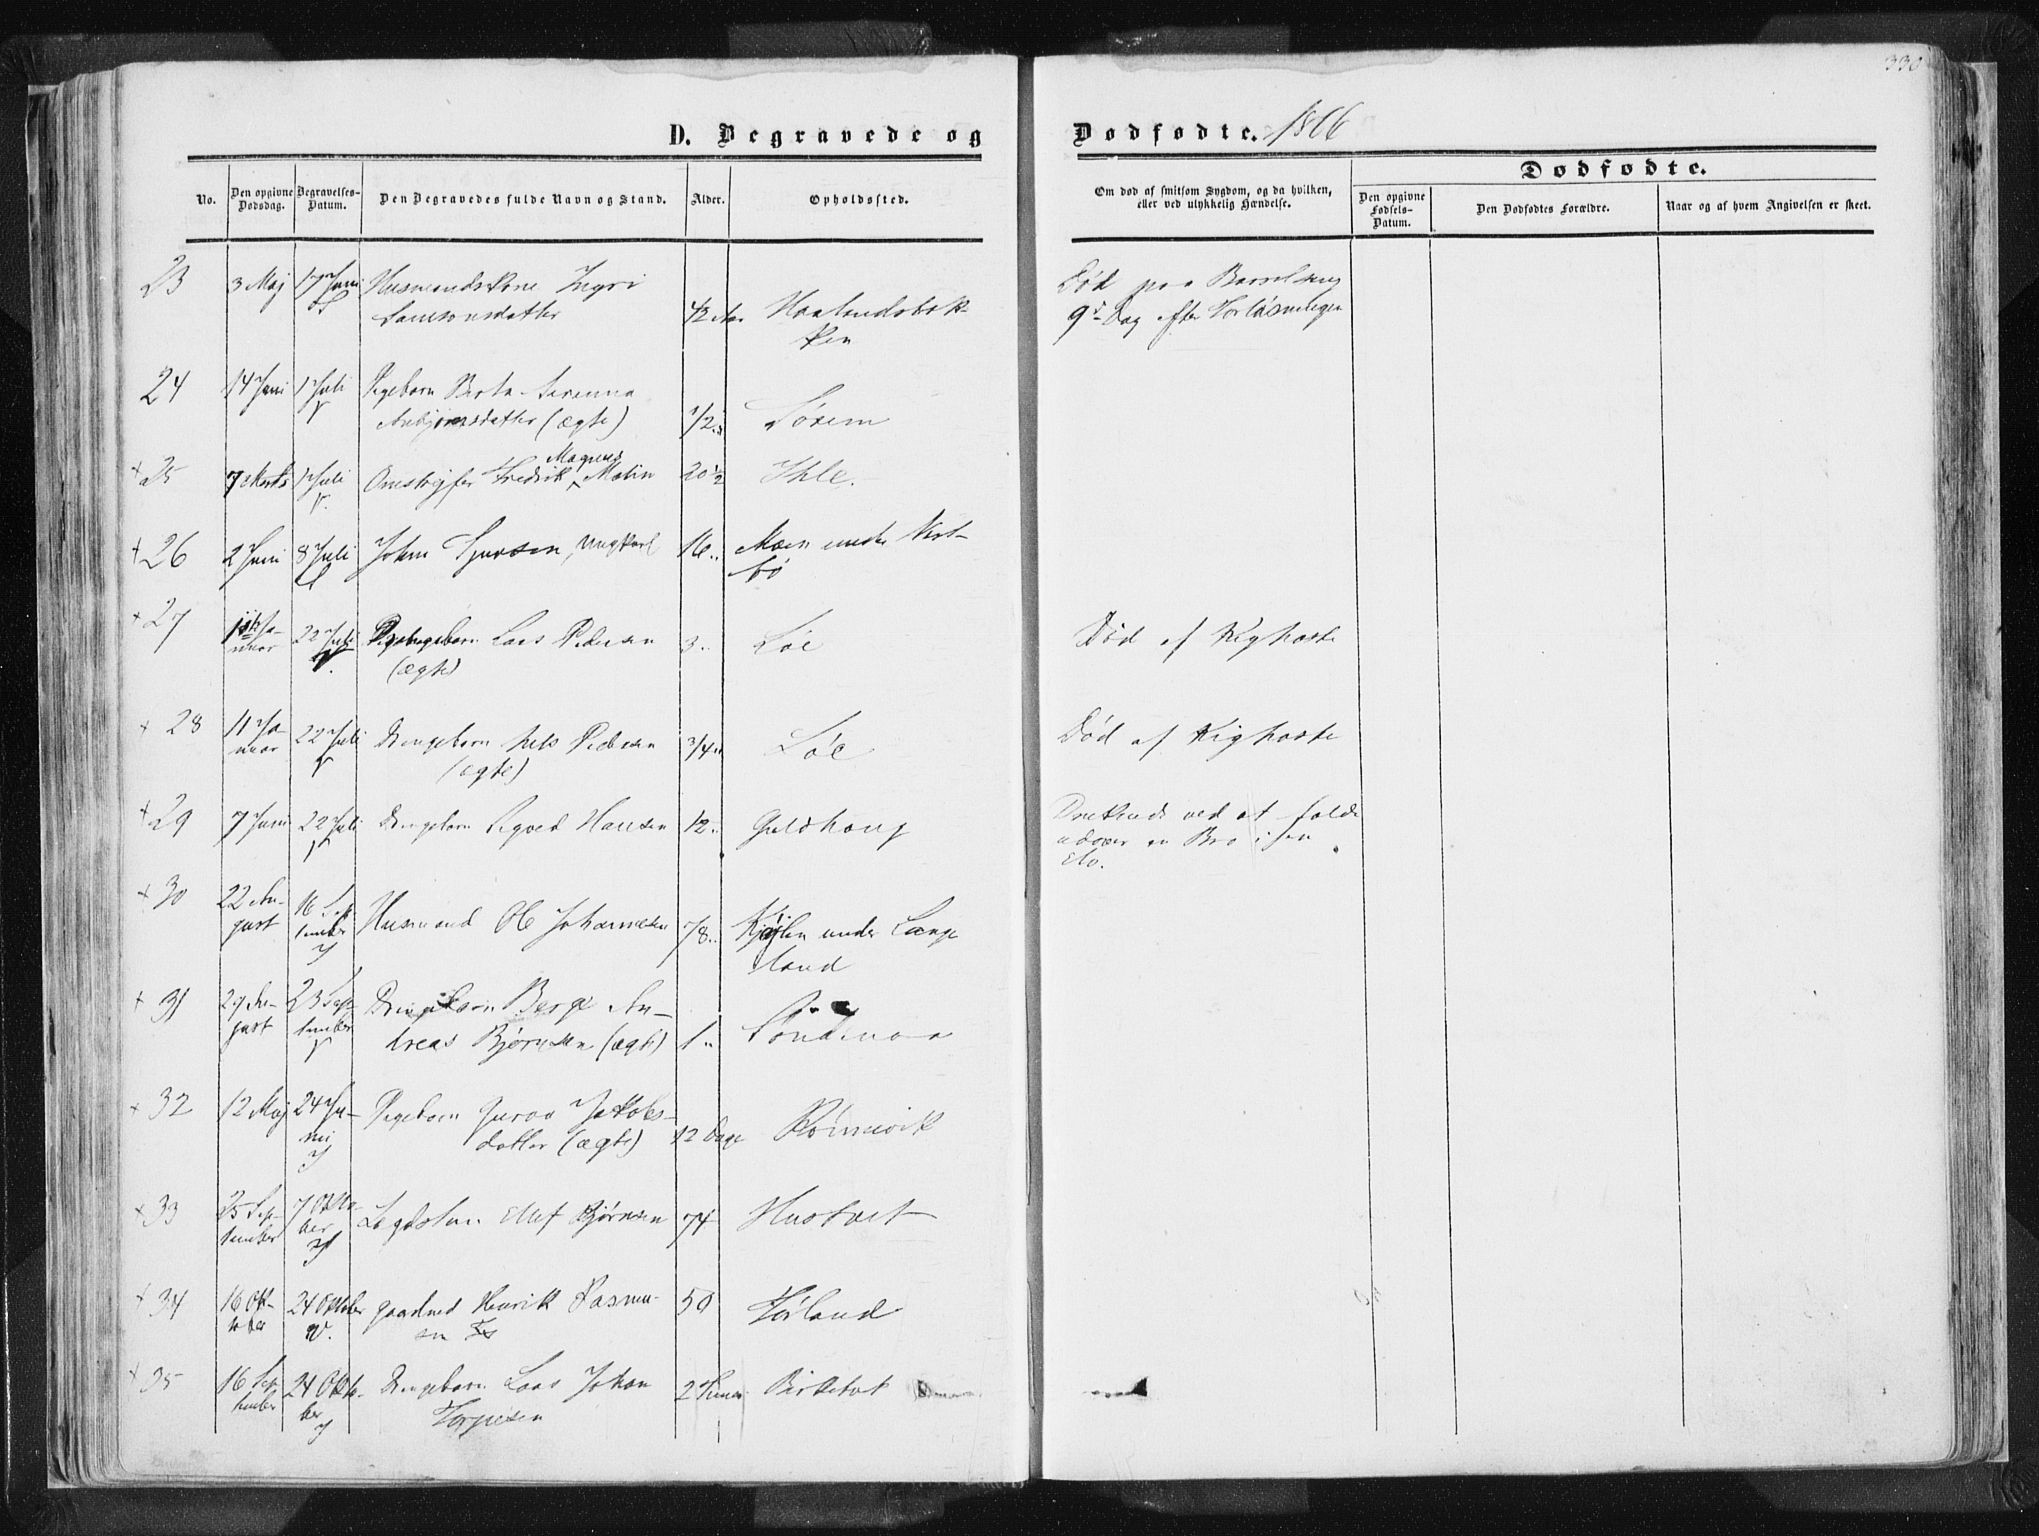 330
D. Begravede og Dødfødte. 1866
Dødfødte.
No.
Den opgivne Dødsdag.
Begravelses-Datum.
Den Begravedes fulde Navn og Stand.
Alder.
Opholdssted.
Om død af smitsom Sygdom, og da hvilken,
eller ved ulykkelig Hændelse.
Den opgivne Fødsels-Datum.
Den Dødfødtes Forældre.
Naar og af hvem Angivelsen er skeet.
23 3 Maj 17 Juni Husmandskone Ingri
Samsonsdatter 42 Aar Haalandsbak-
ken
Død paa Barselseng
9de Dag efter Forløsningen
24 14 Juni 1 Juli Pigebarn Berta Serenna
Anbjørnsdatter (ægte) 1/2
25 7 Marts 1 Juli Fredrik Magnus Malin 20 1/2 Ihle.
26 2 Juni 8 Juli John Sjursen, Ungkarl 16 Moen under
27 Januar 22 Juli Drengebarn Lars Pedersen 3 Løe
(ægte)
Død af Kighoste
28 11 Ja-
nuar 22 Juli Drengebarn Nels Pedersen 3/4 Løe
(ægte)
Død af Kighoste
29 7 Juni 22 Juli Drengebarn Sigved Hansen 12 Guldhaug
Druknede ved at falde
udover en Bro i en
Elv.
30 22 Au-
gust 16 Sep-
tember Husmand Ole Johannesen 78 under Lange
land
31 29 Au-
gust 23 Sep-
tember Drengebarn Berge An-
dreas Bjørnsen (ægte) 1 Søndenaa
32 12 Maj 24 Ju-
ni Pigebarn Guroa Jakobs-
datter (ægte) 12 Dage Rønnevik
33 25 Sep-
tember 7 Okto-
ber Lægdslem Ellef Bjørnsen 74 Hustvet
34 16 Ok-
tober 24 Oktober Gaardmd Henrik Rasmu-
sen 50 Tørland
35 16 Sep-
tember 24 Okto-
ber Drengebarn Lars Johan
Torgersen 2 Timer Birketvet